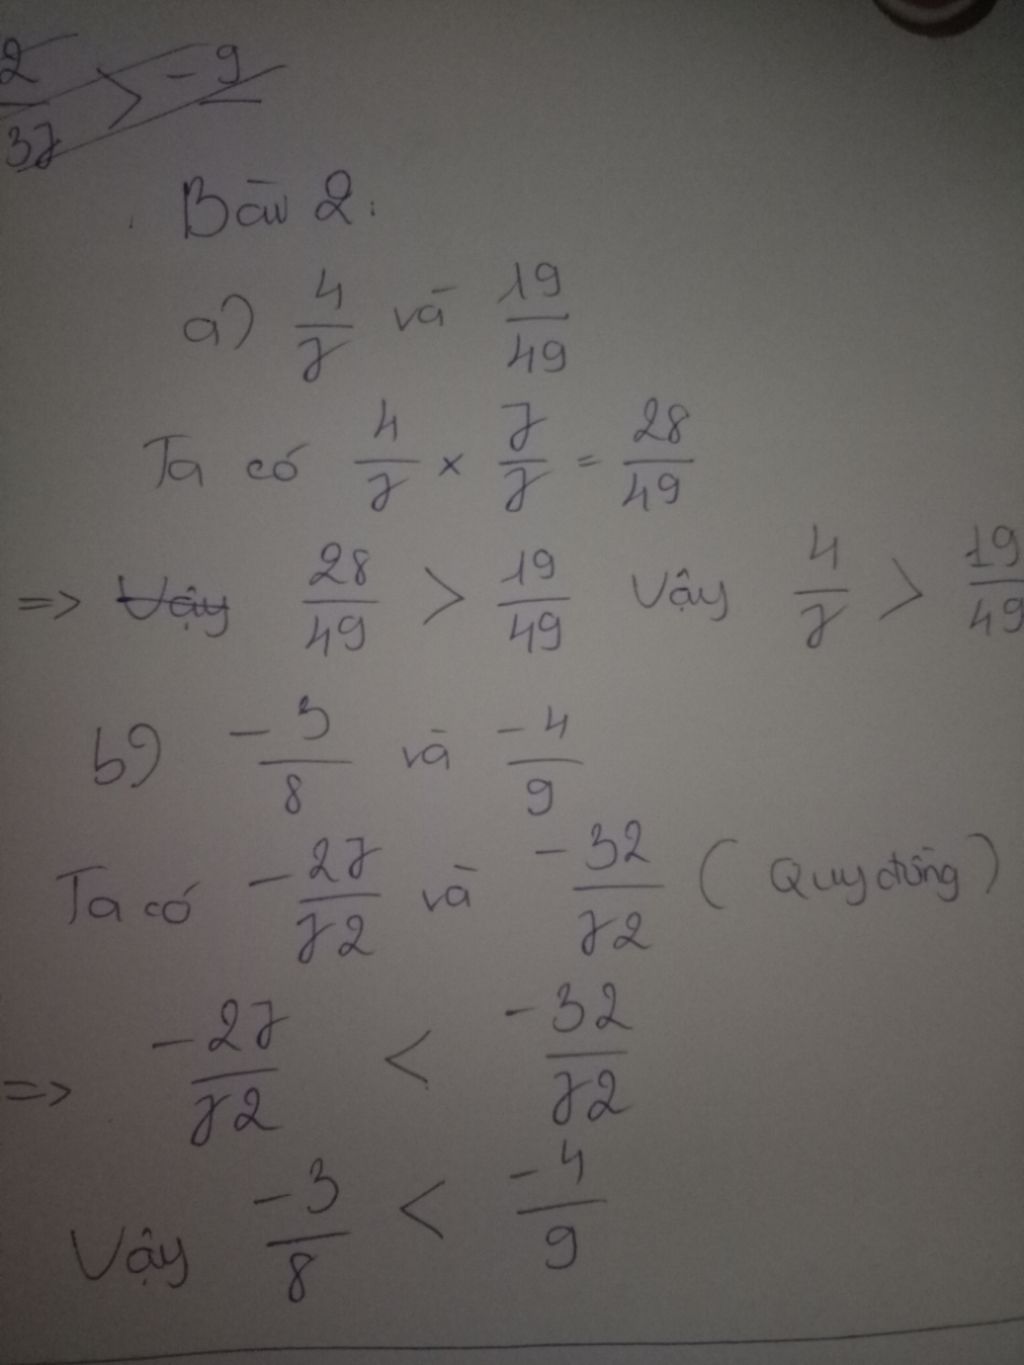 2/37 > -9
Bài 2:
a) 4/7 và 19/49
Ta có 4/7 × 7/7 = 28/49
=> Vậy 28/49 > 19/49 Vậy 4/7 > 19/49
b) -3/8 và -4/9
Ta có -27/72 và -32/72 ( Quy đồng )
=> -27/72 < -32/72
Vậy -3/8 < -4/9